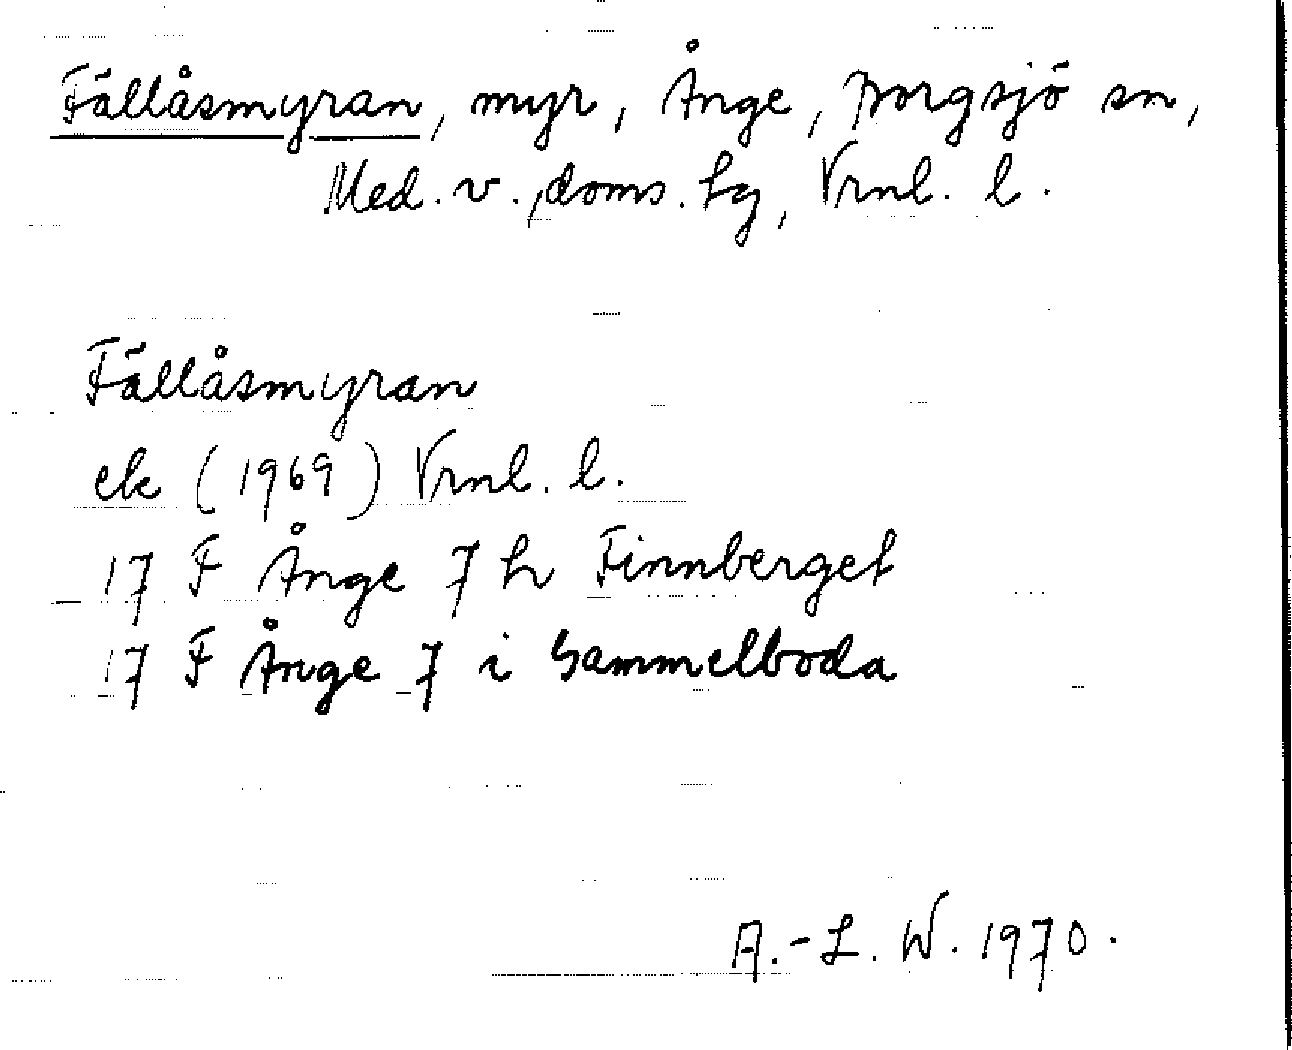 Fällåsmyran, myr, Ånge, Borgsjö sn,
Med. v. doms. hg, Vrnl. l.
Fällåsmyran
ek (1969) Vrnl. l.
17 F Ånge 7 h Finnberget
17 F Ånge 7 i Gammelboda
A.-L. W. 1970.